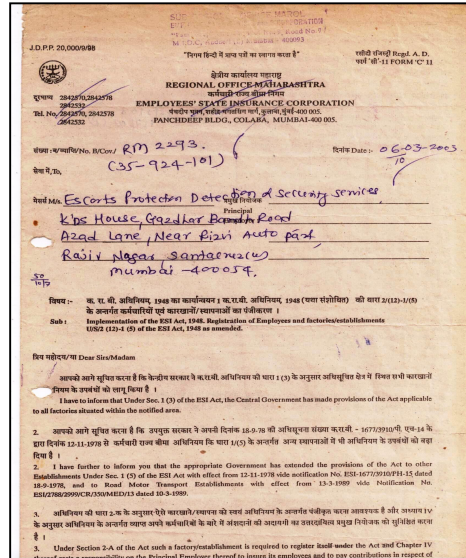 J.D.P.P. 20,000/9/98
"निगम हिन्दी में प्राप्त पत्रों का स्वागत करता है"
रसीदी रजिस्ट्री Regd. A. D.
फार्म 'सी'-11 FORM 'C' 11
क्षेत्रीय कार्यालय महाराष्ट्र
REGIONAL OFFICE MAHARASHTRA
कर्मचारी राज्य बीमा निगम
EMPLOYEES' STATE INSURANCE CORPORATION
पंचदीप भवन, कुलाबा, मुंबई-400 005.
PANCHDEEP BLDG., COLABA, MUMBAI-400 005.
दूरभाष 2842570,2842578
2842532
Tel. No. 2842570, 2842578
2842532
संख्या : No. B/Cov./ RM 2293.
(35-924-101)
दिनांक Date :- 06-03-2003
10
सेवा में, To,
मेसर्स M/s. Escorts Protection Detection & Security services
प्रमुख नियोजक
Principal
K'ns House, Gazdhar Bandh Road
Azad Lane, Near Rizvi Auto park
Rajiv Nagar Santacruz(w)
mumbai - 400054.
विषय :- क. रा. बी. अधिनियम, 1948 का कार्यान्वयन 1 क.रा.बी. अधिनियम, 1948 (यथा संशोधित) की धारा 2/(12)-1/(5)
के अन्तर्गत कर्मचारियों एवं कारखानों/स्थापनाओं का पंजीकरण ।
Sub : Implementation of the ESI Act, 1948. Registration of Employees and factories/establishments
U/S/2 (12)-1 (5) of the ESI Act, 1948 as amended.
प्रिय महोदय/या Dear Sirs/Madam
आपको आगे सूचित करना है कि केन्द्रीय सरकार ने क.रा.बी. अधिनियम की धारा 1 (3) के अनुसार अधिसूचित क्षेत्र में स्थित सभी कारखानों
नियम के उपबंधों को लागू किया है ।
I have to inform that Under Sec. 1 (3) of the ESI Act, the Central Government has made provisions of the Act applicable
to all factories situated within the notified area.
2. आपको आगे सूचित करना है कि उपयुक्त सरकार ने अपनी दिनांक 18-9-78 की अधिसूचना संख्या क.रा.बी. - 1677/3910/पी. एच-14 के
द्वारा दिनांक 12-11-1978 से कर्मचारी राज्य बीमा अधिनियम कि धारा 1/(5) के अन्तर्गत अन्य स्थापनाओं में भी अधिनियम के उपबंधों को बढ़ा
दिया है ।
2. I have further to inform you that the appropriate Government has extended the provisions of the Act to other
Establishments Under Sec. 1 (5) of the ESI Act with effect from 12-11-1978 vide notification No. ESI-1677/3910/PH-15 dated
18-9-1978, and to Road Motor Transport Establishments with effect from 13-3-1989 vide Notification No.
ESI/2788/2999/CR/350/MED/13 dated 10-3-1989.
3. अधिनियम की धारा 2-क के अनुसार ऐसे कारखाने/स्थापना को स्वयं अधिनियम के अन्तर्गत पंजीकृत करना आवश्यक है और अध्याय IV
के अनुसार अधिनियम के अन्तर्गत व्याप्त अपने कर्मचारियों के बारे में अंशदानों की अदायगी का उत्तरदायित्व प्रमुख नियोजक को सुनिश्चित करना
है ।
3. Under Section 2-A of the Act such a factory/establishment is required to register itself under the Act and Chapter IV
thereof casts a responsibility on the Principal Employer thereof to insure its employees and to pay contributions in respect of